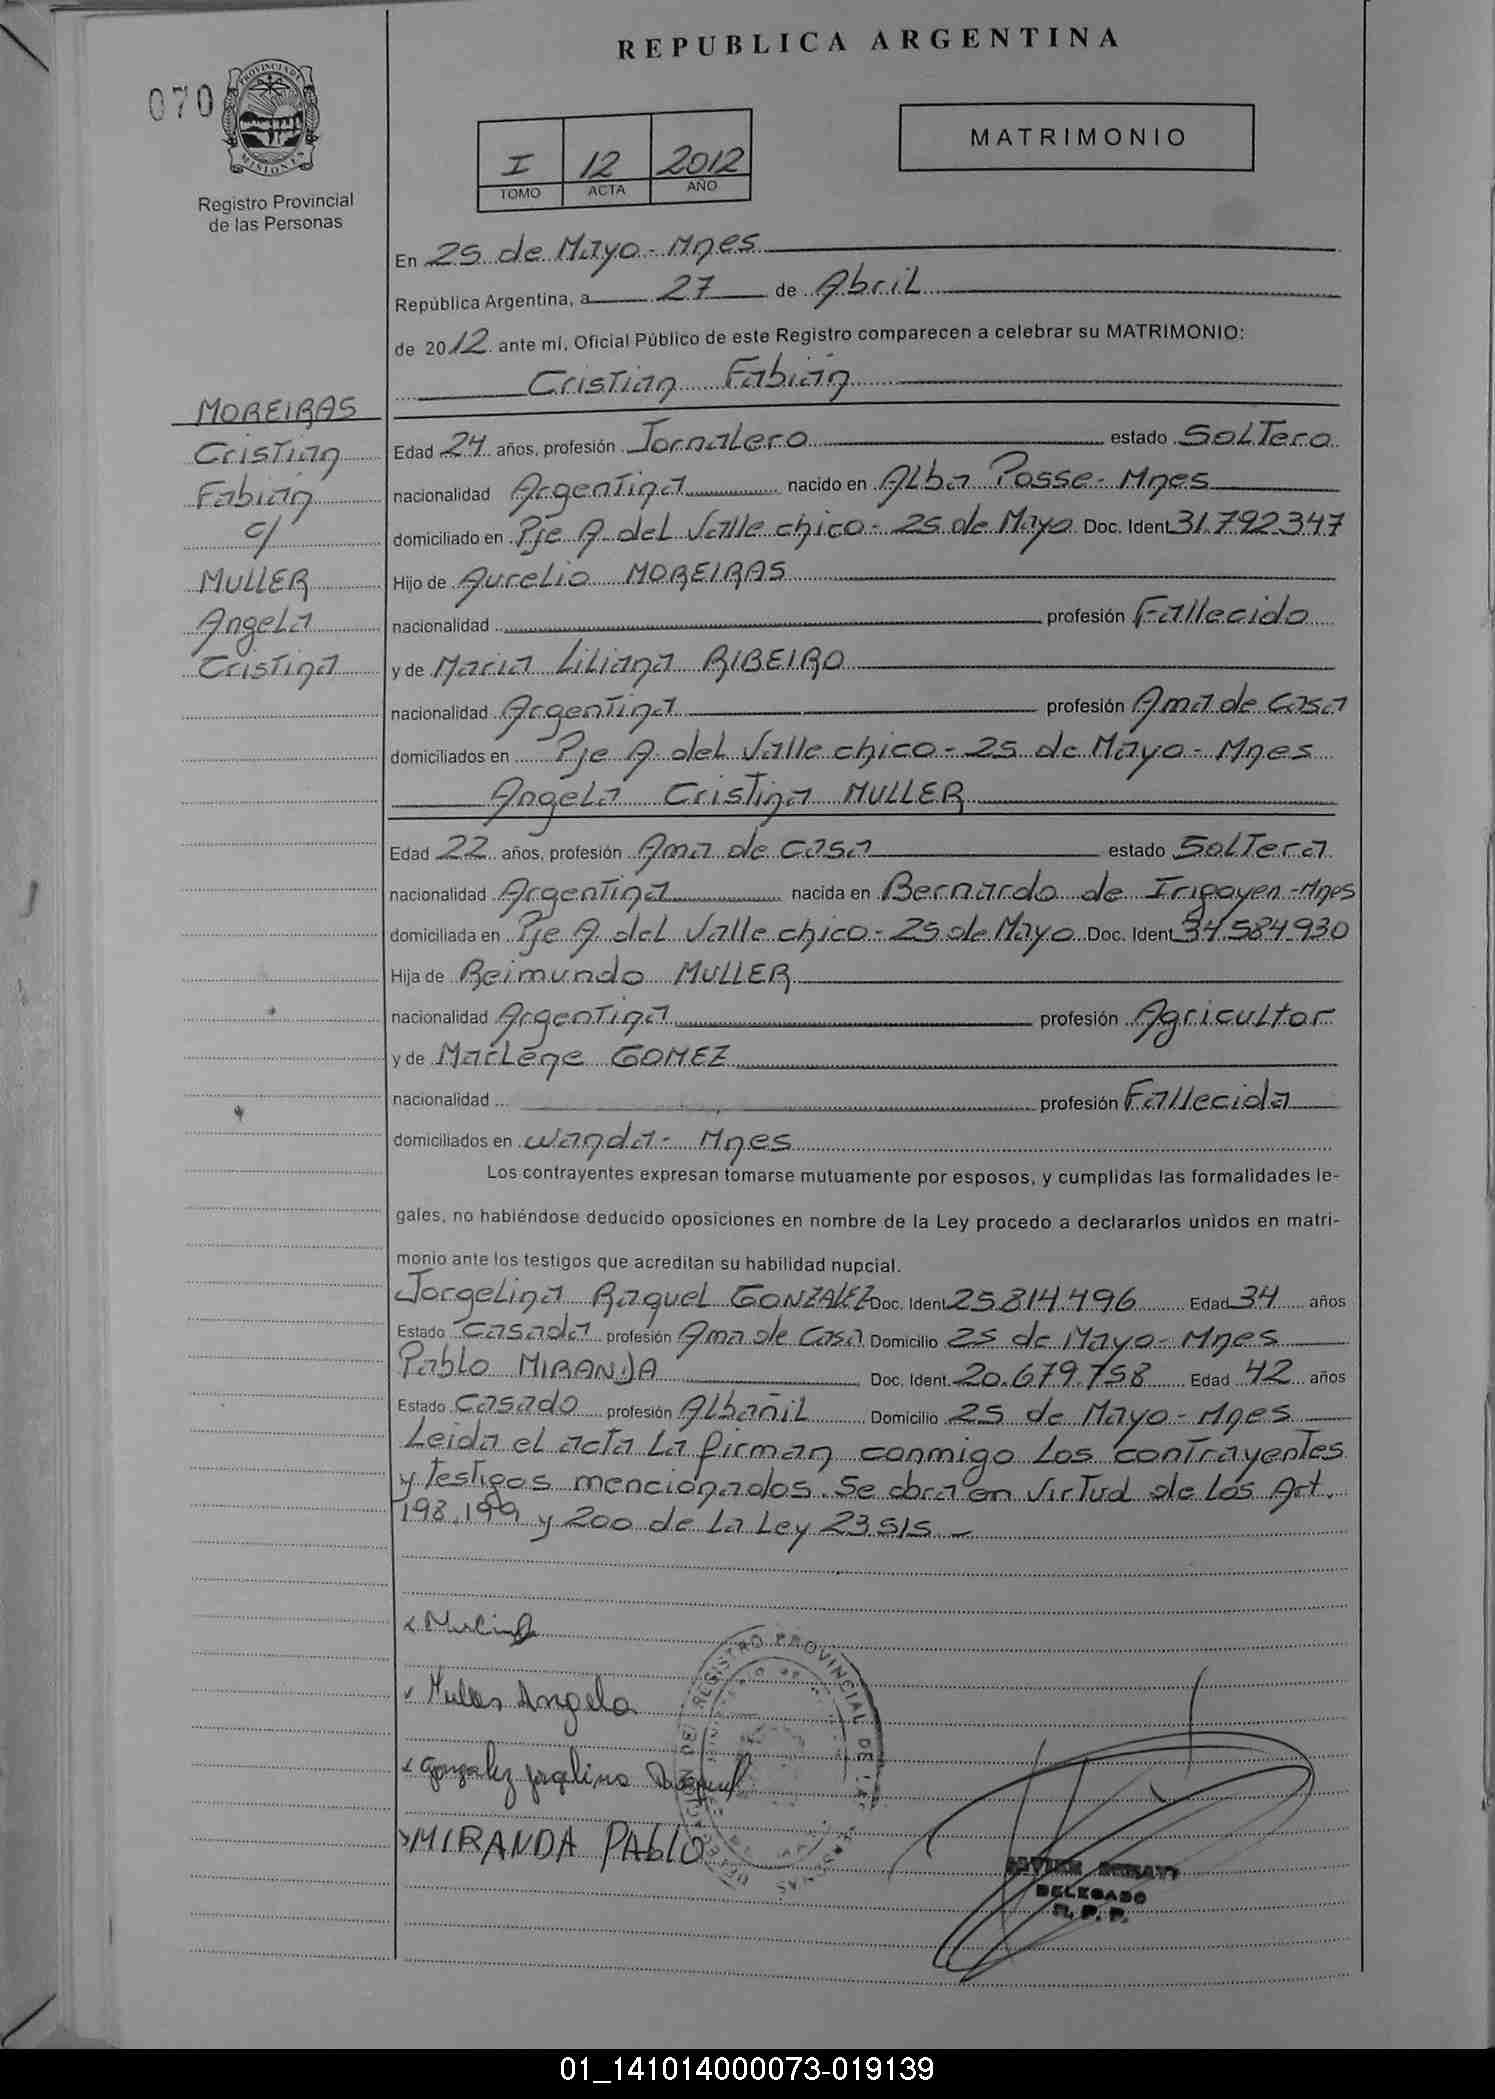 REPUBLICA ARGENTINA
070
PROVINCIA DE
MISIONES
Registro Provincial
de las Personas
MATRIMONIO
I 12 2012
TOMO ACTA AÑO
En 25 de Mayo - Mnes
República Argentina, a 27 de Abril
de 2012 ante mí, Oficial Público de este Registro comparecen a celebrar su MATRIMONIO:
Cristian Fabián
MOREIRAS
Cristian
Fabián
c/
MULLER
Angela
Cristina
Edad 24 años, profesión Jornalero estado Soltero
nacionalidad Argentina nacido en Alba Posse - Mnes
domiciliado en Pje A. del Valle chico - 25 de Mayo Doc. Ident 31.792.347
Hijo de Aurelio MOREIRAS
nacionalidad profesión Fallecido
y de Maria Liliana RIBEIRO
nacionalidad Argentina profesión Ama de casa
domiciliados en Pje A. del Valle chico - 25 de Mayo - Mnes
Angela Cristina MULLER
Edad 22 años, profesión Ama de casa estado Soltera
nacionalidad Argentina nacida en Bernardo de Irigoyen - Mnes
domiciliada en Pje A. del Valle chico - 25 de Mayo Doc. Ident 34.584.930
Hija de Reimundo MULLER
nacionalidad Argentina profesión Agricultor
y de Marlene GOMEZ
nacionalidad profesión Fallecida
domiciliados en Wanda - Mnes
Los contrayentes expresan tomarse mutuamente por esposos, y cumplidas las formalidades le-
gales, no habiéndose deducido oposiciones en nombre de la Ley procedo a declararlos unidos en matri-
monio ante los testigos que acreditan su habilidad nupcial.
Jorgelina Raquel GONZALEZ Doc. Ident 25.814.496 Edad 34 años
Estado Casada profesión Ama de Casa Domicilio 25 de Mayo - Mnes
Pablo MIRANDA Doc. Ident. 20.679.758 Edad 42 años
Estado Casado profesión Albañil Domicilio 25 de Mayo - Mnes
Leida el acta la firman conmigo los contrayentes
y testigos mencionados. Se obra en virtud de los Art.
198.199 y 200 de la Ley 23515 -
Muller Angela
Gonzalez Jorgelina Raquel
MIRANDA PAblO
REGISTRO PROVINCIAL DE LAS PERSONAS
DELEGADO
R. P. P.
01_141014000073-019139